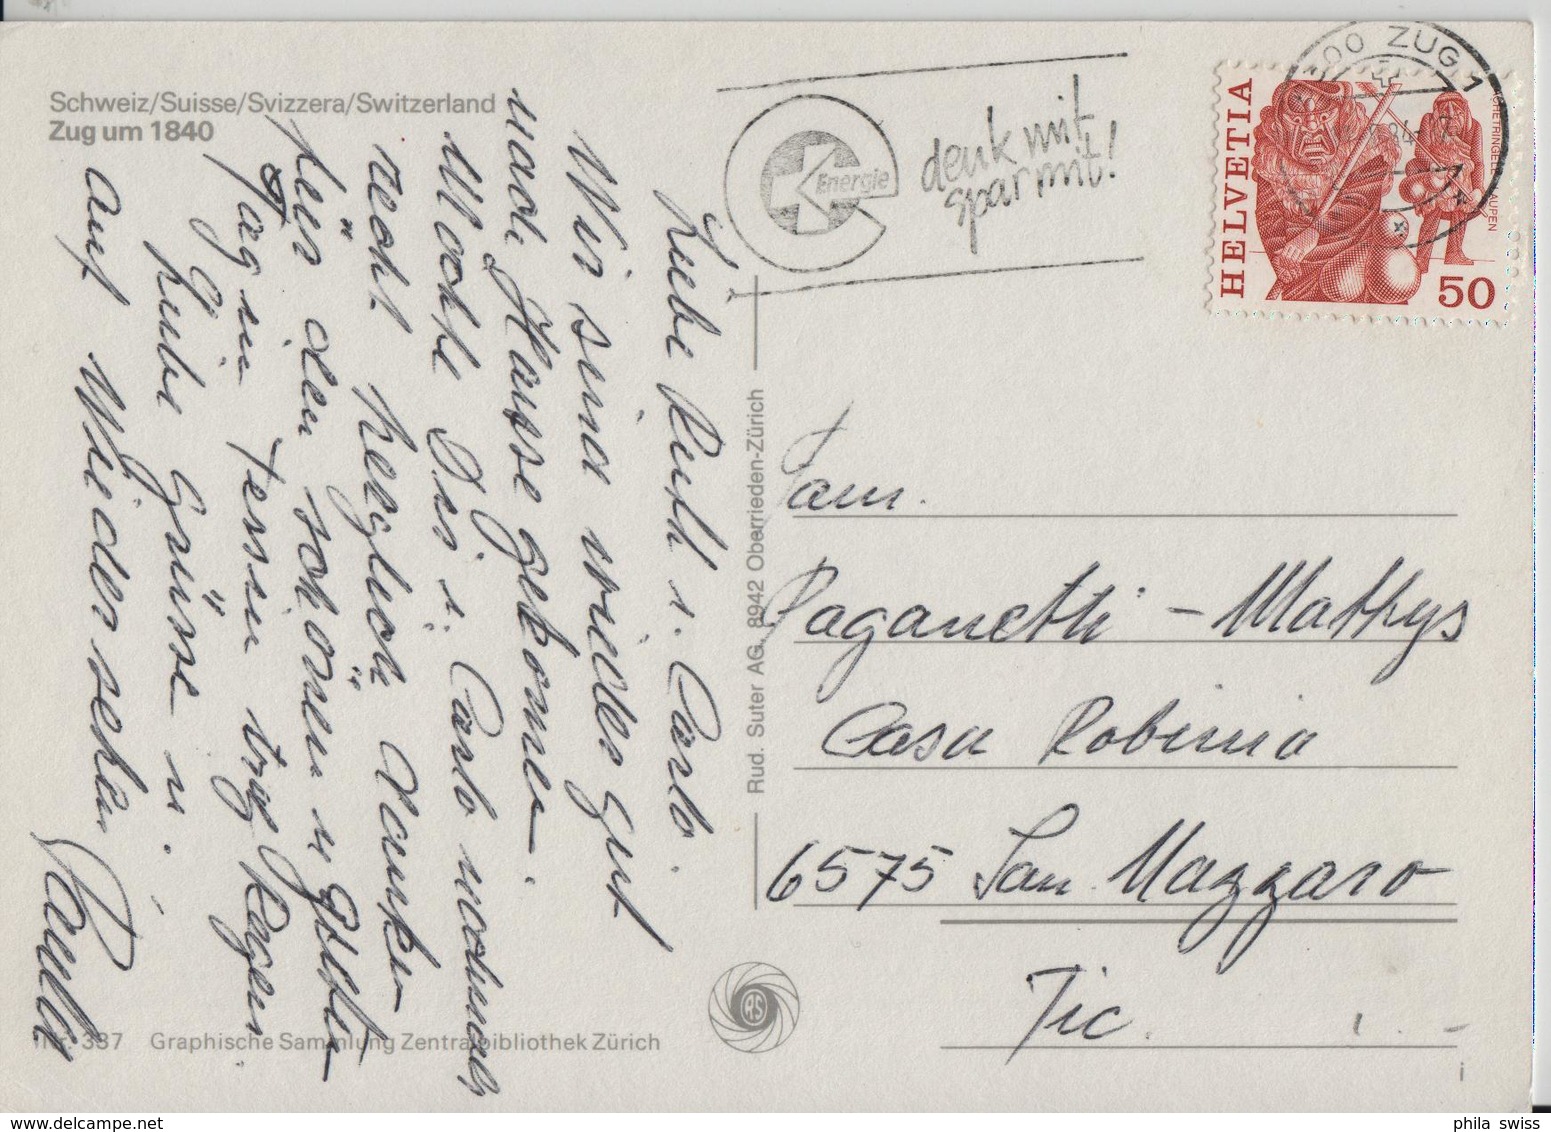 Schweiz/Suisse/Svizzera/Switzerland
Zug um 1840
Energie
denk mit
spar mit!
6300 ZUG 1
HELVETIA
50
Liebe Ruth u. Carlo.
Wir sind wieder gut
nach Hause gekommen.
Möchte Dir u. Carlo nochmals
recht herzlich danken
für den schönen u. guten
Tag im Tessin trotz Regen.
Liebe Grüsse u.
auf Wiedersehen
Rud. Suter AG, 8942 Oberrieden-Zürich
Fam.
Paganetti-Mathys
Casa Robinia
6575 San Nazzaro
Tic.
Nr. 337 Graphische Sammlung Zentralbibliothek Zürich
RS
phila swiss